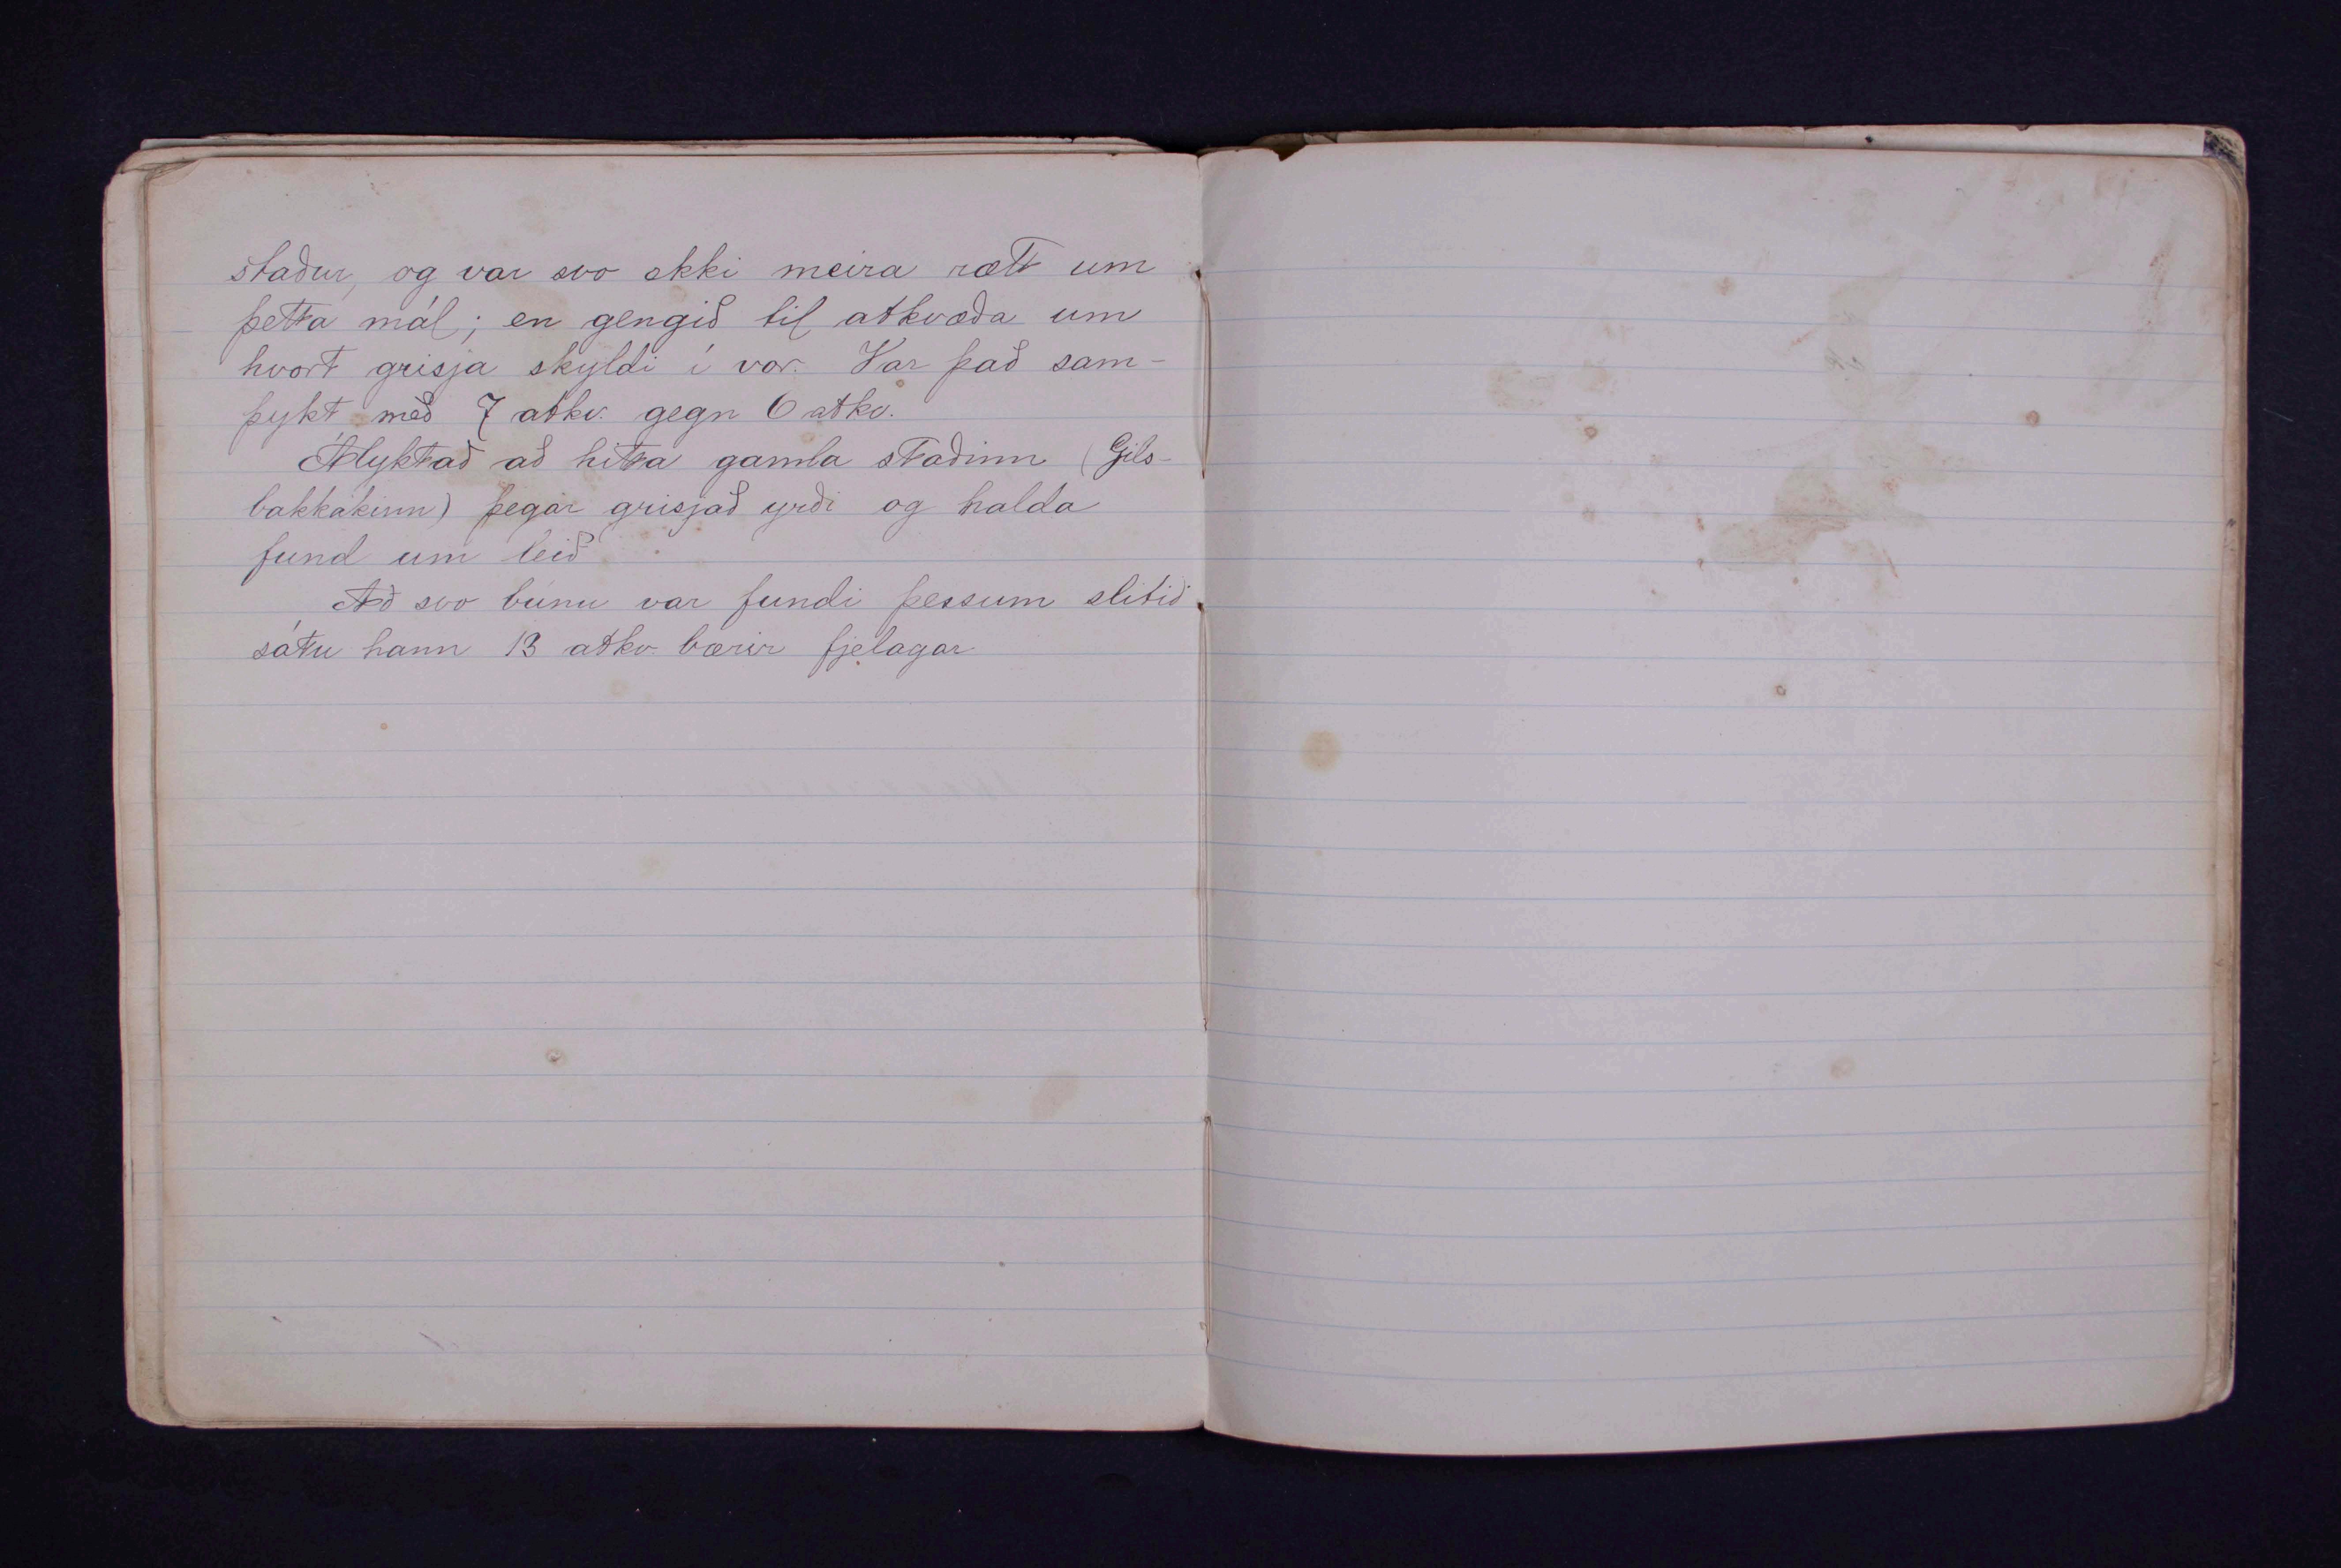 staður, og var svo ekki meira rætt um
þetta mál; en gengið til atkvæða um
hvort grisja skyldi í vor. Var það sam-
þykt með 7 atkv. gegn 6 atkv.
Ályktað að hitta gamla staðinn (Gils-
bakkakinn) þegar grisjað yrði og halda
fund um leið
Að svo búnu var fundi þessum slitið.
sátu hann 13 atkv. bærir fjelagar